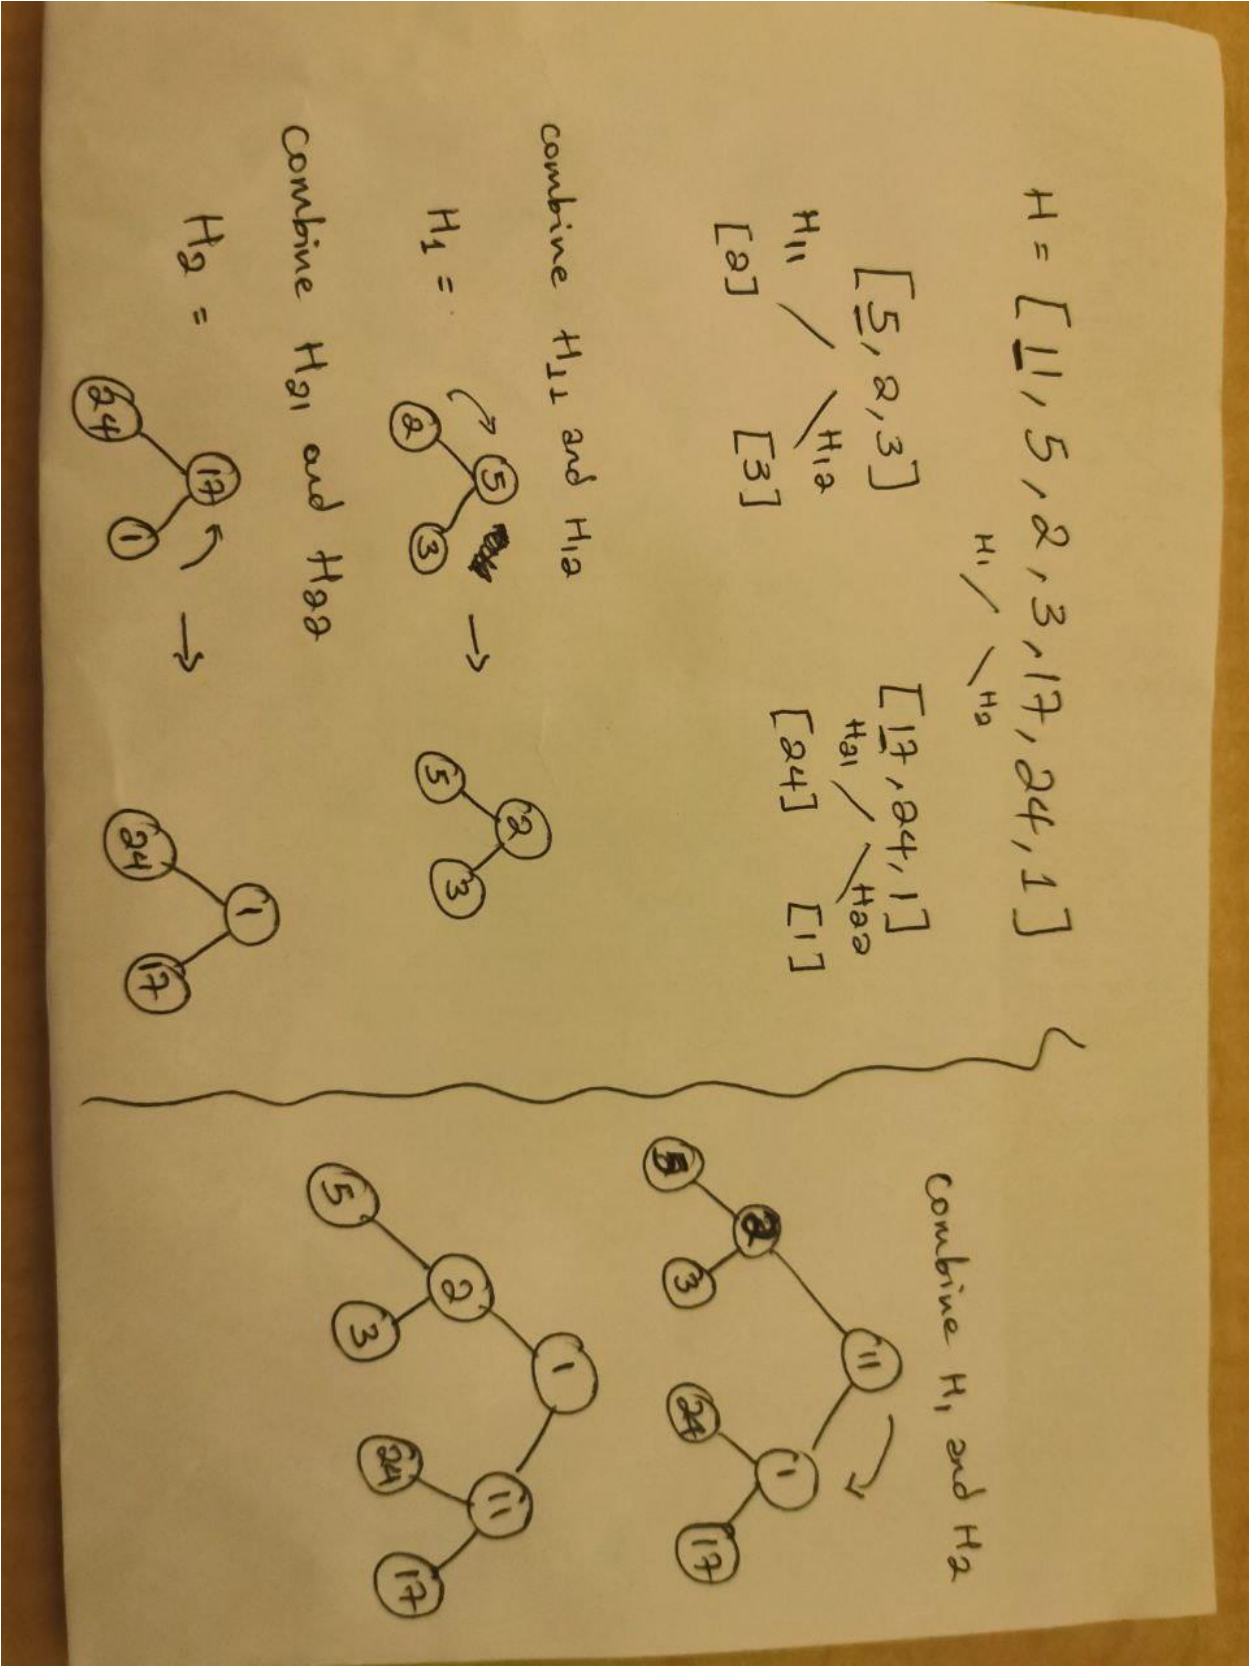 H = [11, 5, 2, 3, 17, 24, 1]
H1 H2
[5, 2, 3] [17, 24, 1]
H11 H12 H21 H22
[2] [3] [24] [1]
combine H11 and H12
H1 =
5
2 3
→
2
5 3
combine H21 and H22
H2 =
17
24 1
→
1
24 17
combine H1 and H2
11
2 1
5 3 24 17
1
2 11
5 3 24 17